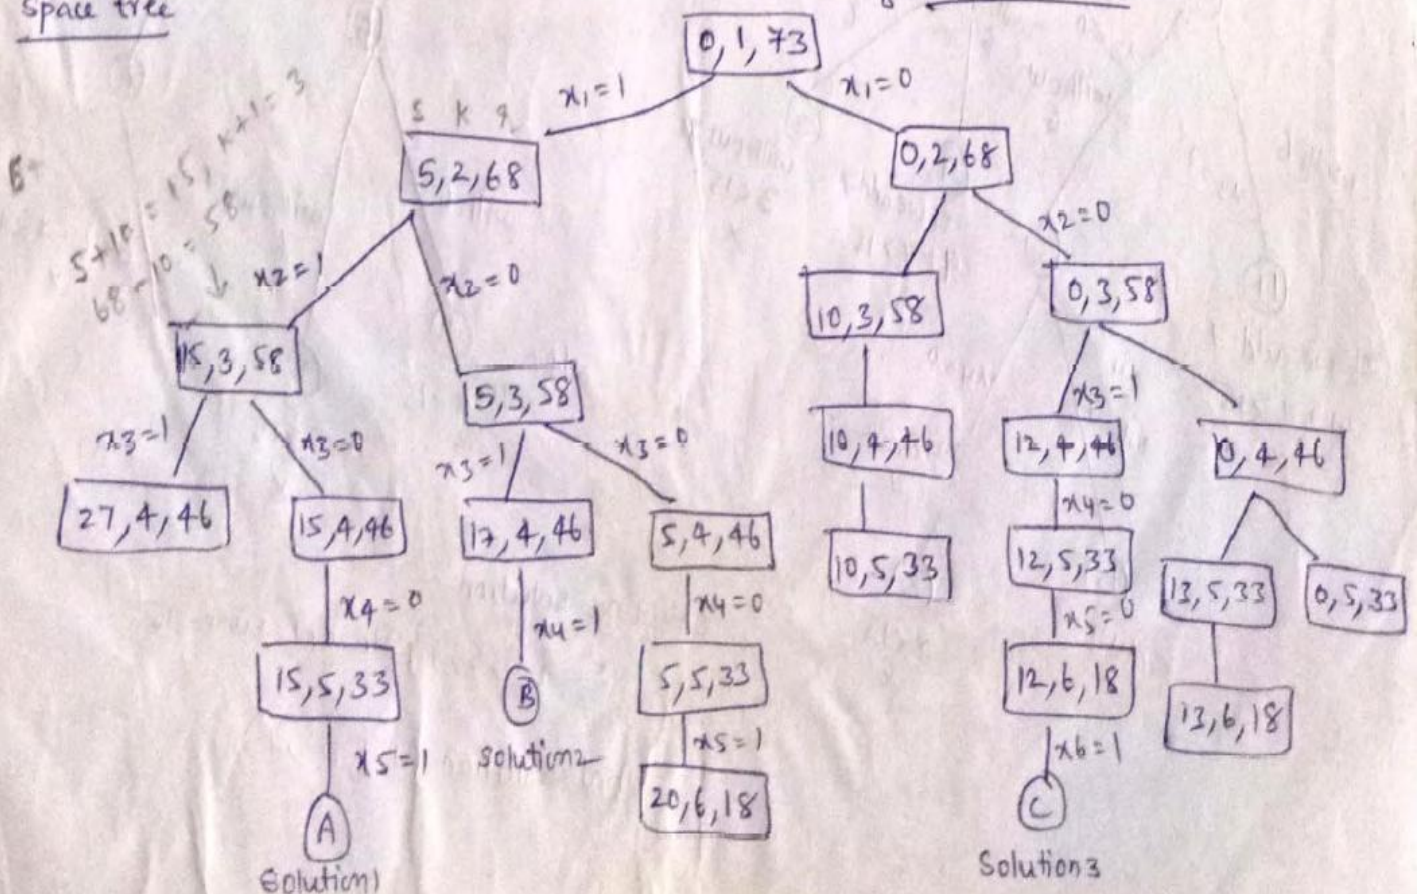 space tree
0,1,73
x1=1
x1=0
S K r
5,2,68
0,2,68
5+10=15, k+1=3
68-10=58
x2=1
x2=0
x2=0
15,3,58
5,3,58
10,3,58
0,3,58
x3=1
x3=0
x3=1
x3=0
x3=1
27,4,46
15,4,46
17,4,46
5,4,46
10,4,46
12,4,46
0,4,46
x4=0
x4=1
x4=0
x4=0
15,5,33
B
5,5,33
10,5,33
12,5,33
13,5,33
0,5,33
x5=1
solution2
x5=1
x5=0
A
20,6,18
12,6,18
13,6,18
x6=1
C
Solution1
Solution3